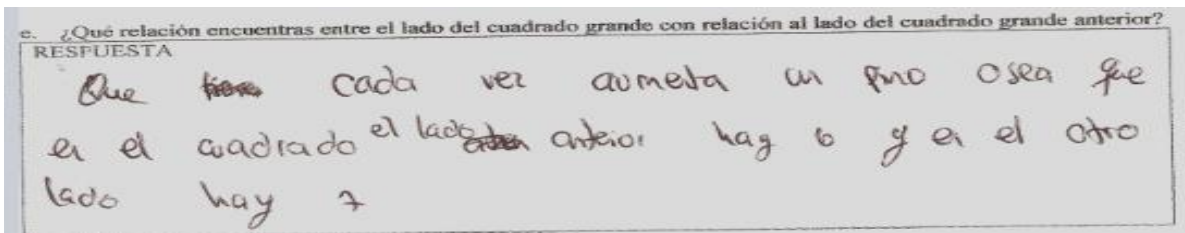 e. ¿Qué relación encuentras entre el lado del cuadrado grande con relación al lado del cuadrado grande anterior?
RESPUESTA
Que cada vez aumeta un pino osea que
en el cuadrado el lado anterior hay 6 y en el otro
lado hay 7